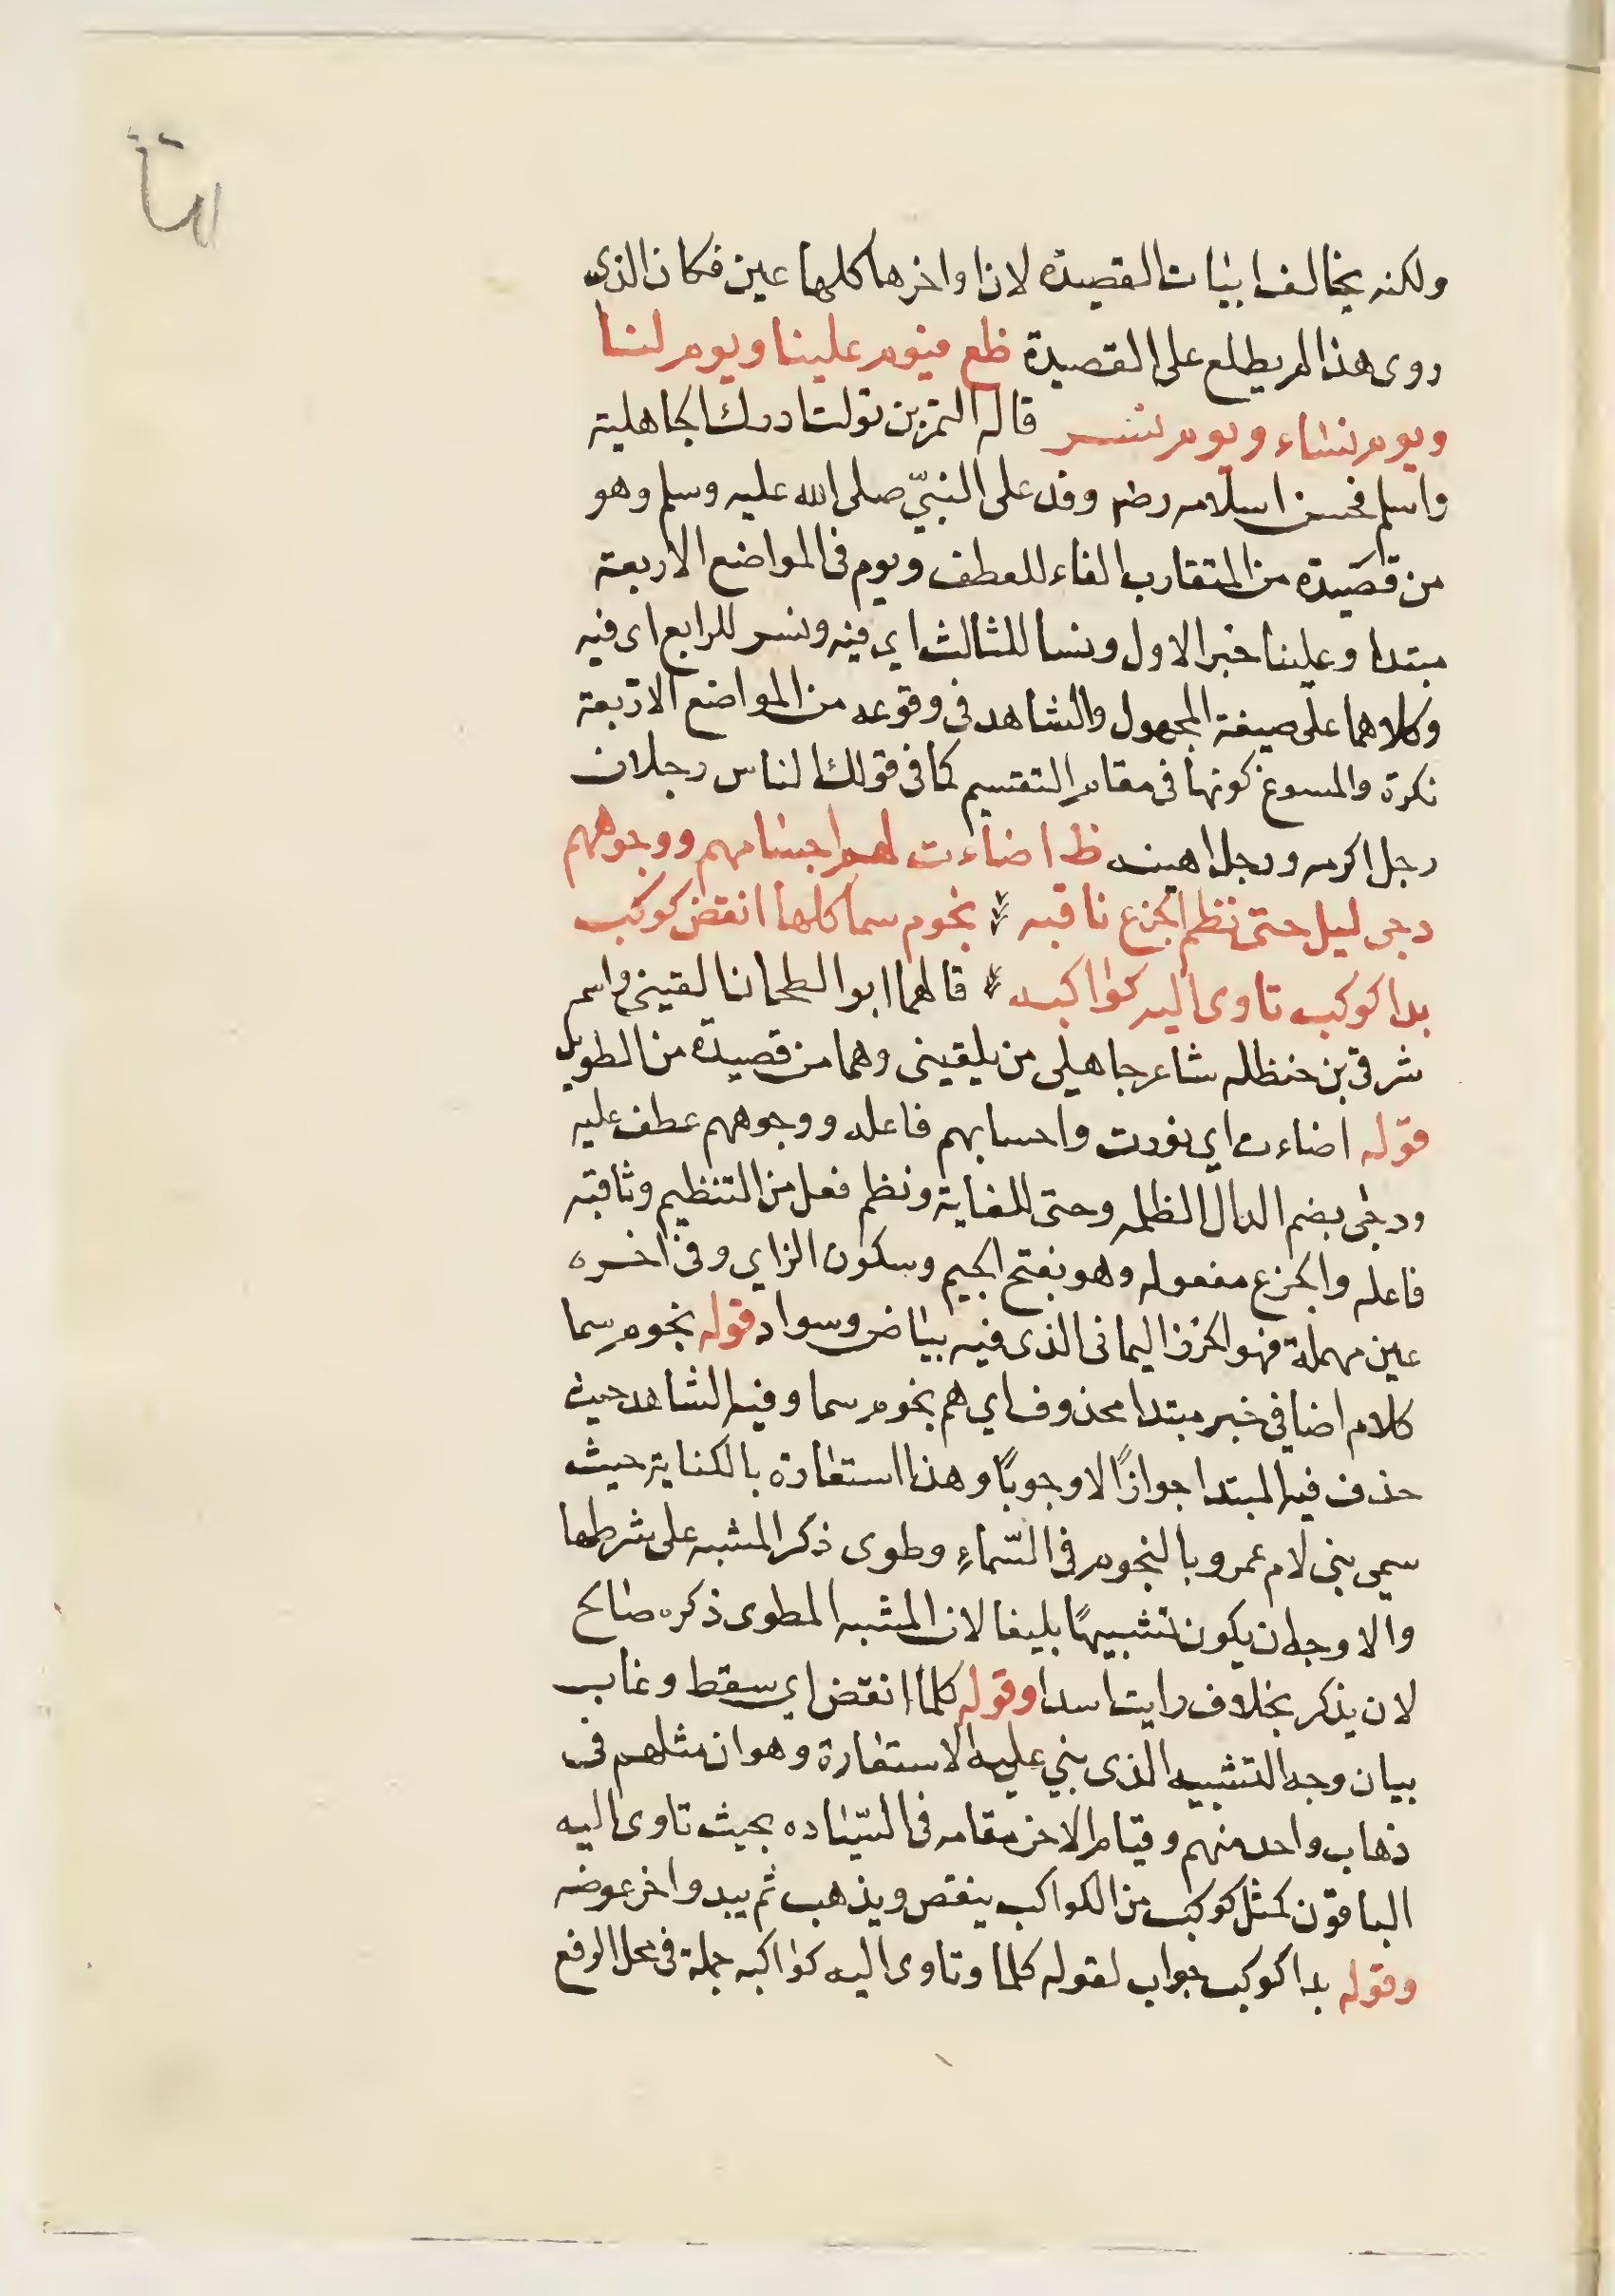 ولكنه يخالف ابيات القصيدة لان اواخرها كلها عين فكان الذى
روى هذا لم يطلع على القصيدة ظع فيوم علينا ويوم لنا
ويوم نساء ويوم نسر قاله النمر بن تولب ادرك الجاهلية
واسلم فحسن اسلامه رضه وفد على النبيّ صلى الله عليه وسلم وهو
من قصيدة من المتقارب الفاء للعطف ويوم فى المواضع الاربعة
مبتدا وعلينا خبر الاول ونسا للثالث اي فيه ونسر للرابع اى فيه
وكلاهما على صيغة المجهول والشاهد فى وقوعه من المواضع الاربعة
نكرة والمسوغ كونها فى مقام التقسيم كما فى قولك الناس رجلان
رجل اكرمه ورجل اهينه ظ اضاءت لهم احسابهم ووجوههم
دجى ليل حتى نظم الجزع ثاقبه نجوم سما كلها انقض كوكب
بدا كوكب تاوى اليه كواكبه قالهما ابو الطحان القينى واسمه
شرقى بن حنظله شاعر جاهلى من بلقينى وهما من قصيدة من الطويل
قوله اضاءت اي نورت واحسابهم فاعله ووجوههم عطف عليه
ودجى بضم الدال الظلمه وحتى للغاية ونظم فعل من التنظيم وثاقبه
فاعله والجزع مفعوله وهو بفتح الجيم وسكون الزاي وفى اخره
عين مهملة فهو الخرز اليمانى الذى فيه بياض وسواد قوله نجوم سما
كلام اضافى خبر مبتدا محذوف اي هم نجوم سما وفيه الشاهد حيث
حذف فيه المبتدا جوازًا لا وجوبًا وهذا استعارة بالكناية حيث
سمى بنى لام عمرو بالنجوم فى السّماءِ وطوى ذكر المشبه على شرطها
والاوجه ان يكون تشبيهًا بليغا لان المشبه المطوى ذكره صالح
لان يذكر بخلاف رايت اسدا وقوله كلما انقض اي سقط وغاب
بيان وجه التشبيه الذى بني عليه الاستعارة وهو ان مثلهم فى
ذهاب واحد منهم وقيام الاخر مقامه فى السّياده بحيث تاوى اليه
الباقون كمثل كوكب من الكواكب ينقص ويذهب ثم يبدو اخر عوضه
وقوله بدا كوكب جواب لقوله كلما وتاوى اليه كواكبه جملة فى محل الرفع